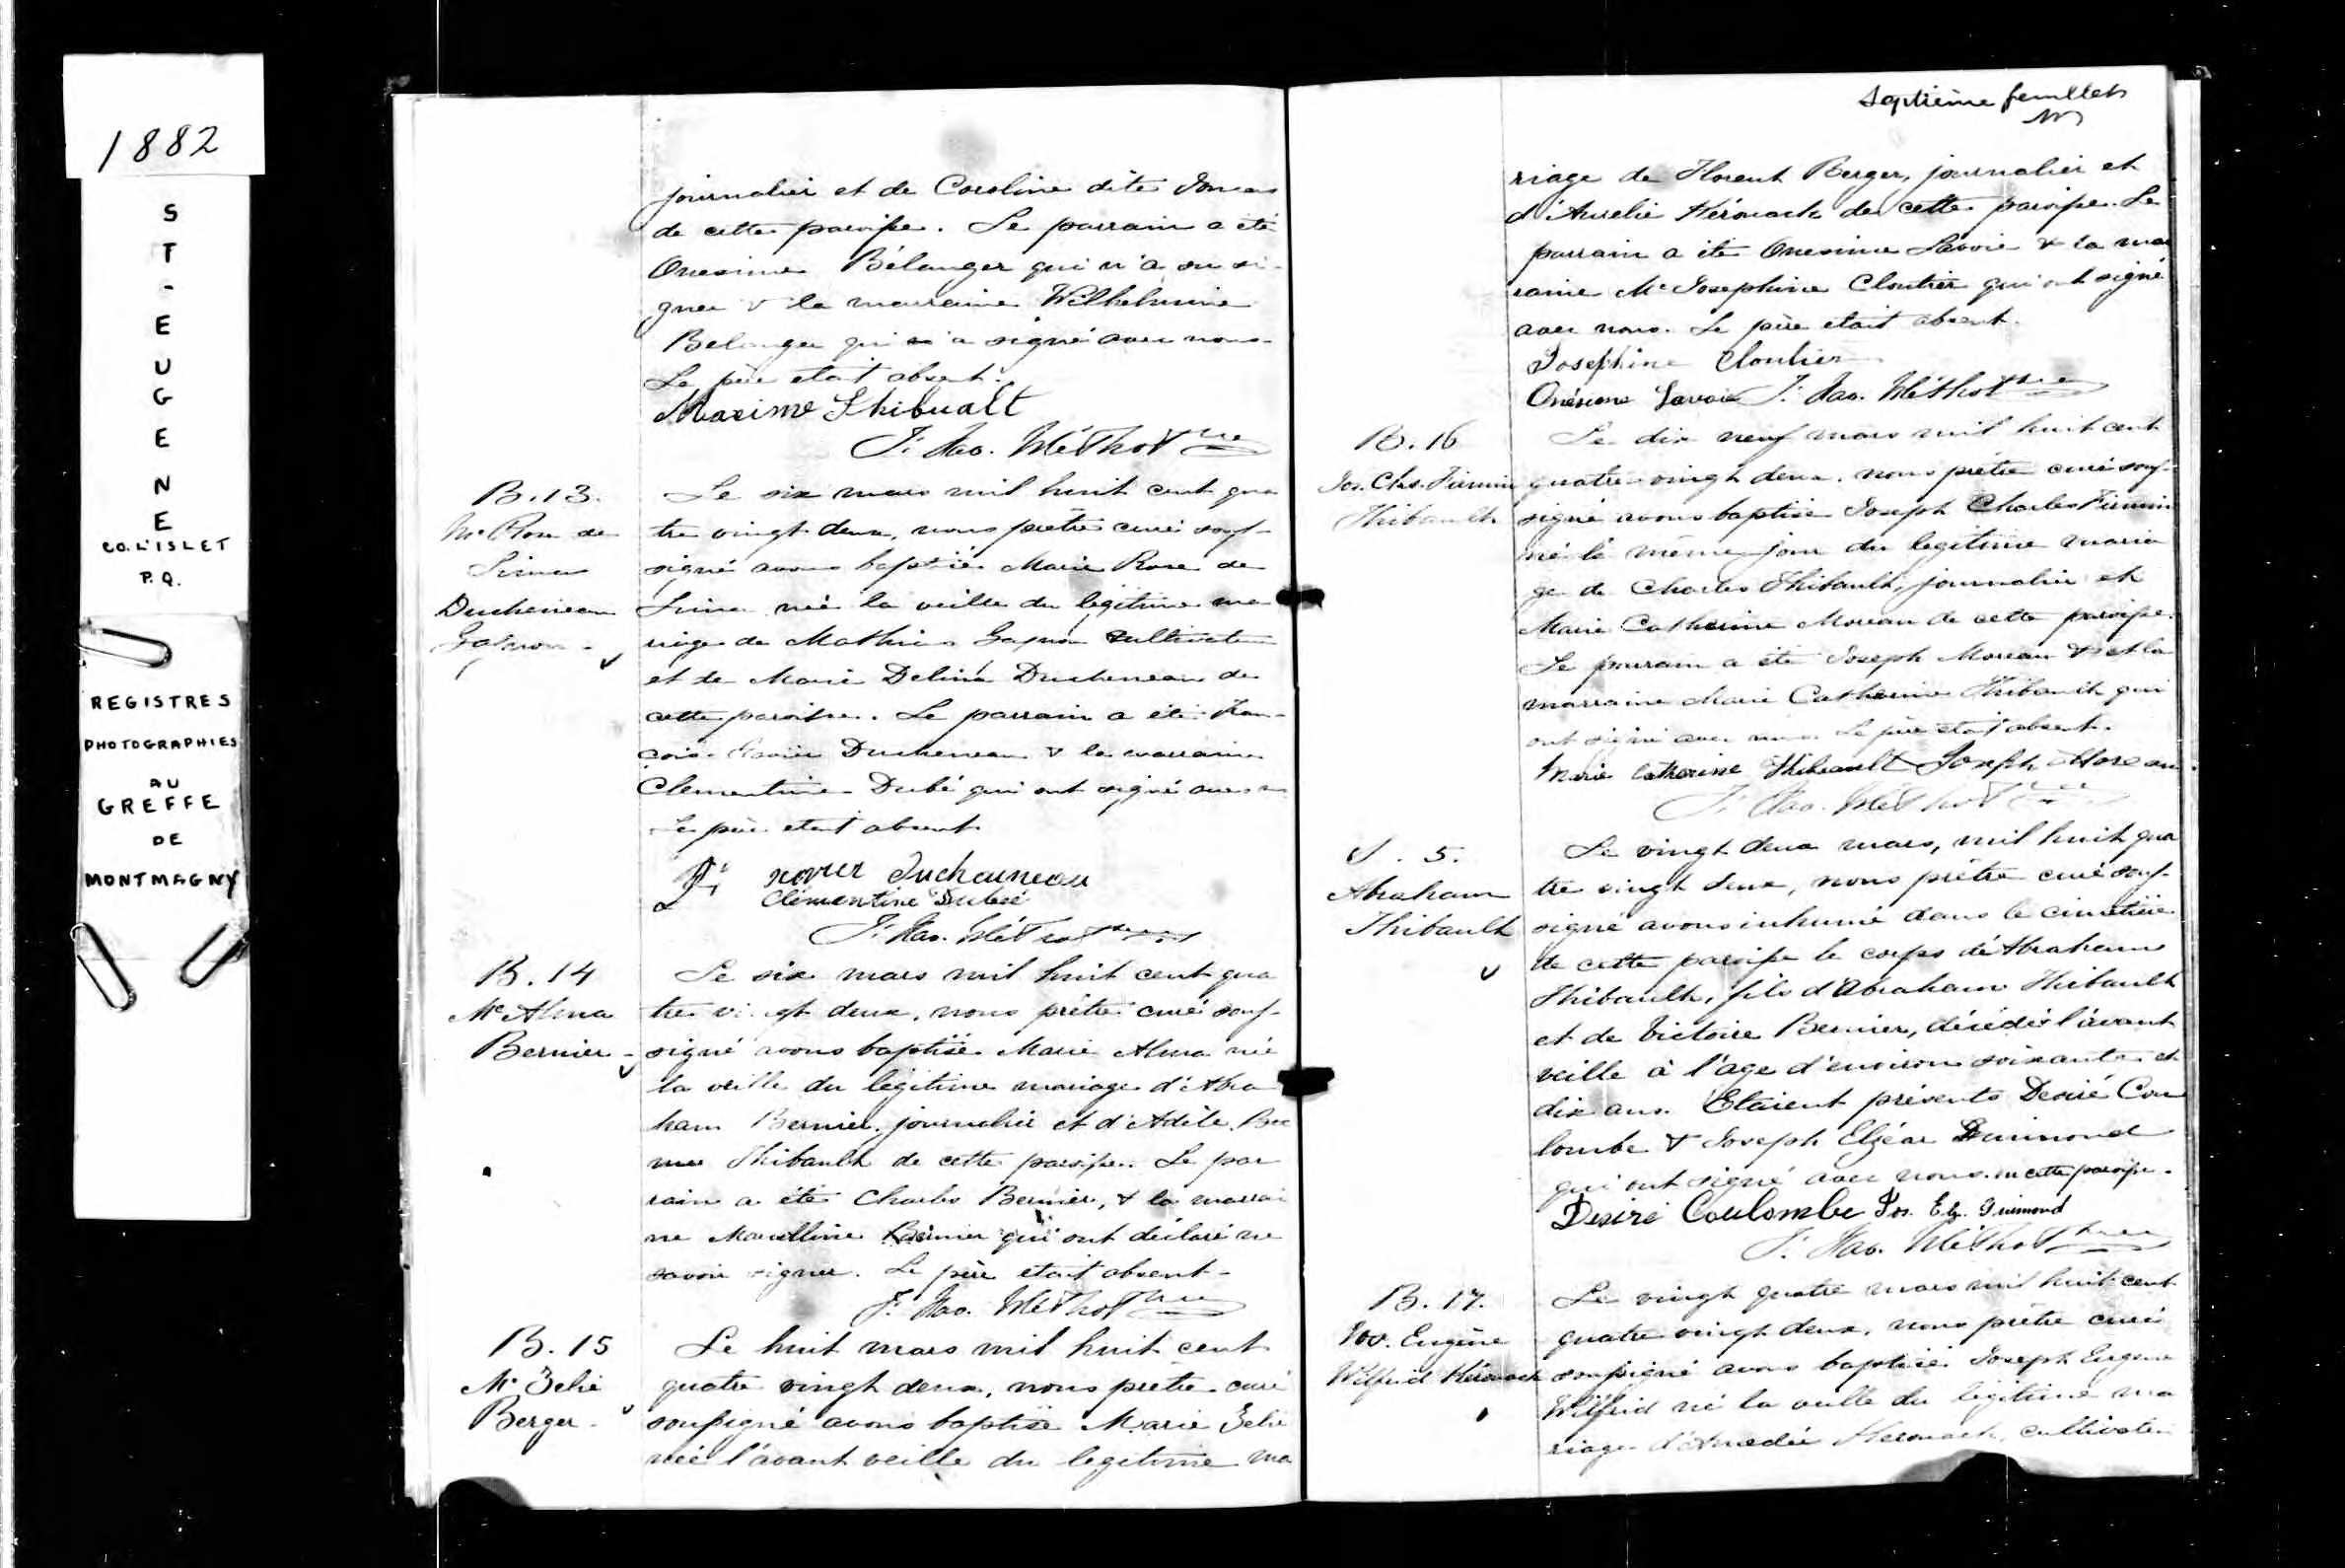 1882
S
T
-
E
U
G
E
N
E
CO. L'ISLET
P.Q.
REGISTRES
PHOTOGRAPHIES
AU
GREFFE
DE
MONTMAGNY
journalier et de Caroline dite
de cette paroisse. Le parrain a été
Onesime Bélanger qui n'a su si-
gner & la marraine Wilhelmine
Belanger qui a signé avec nous.
Le père etait absent.
Maxime Thibualt
F. Hao. Méthot ptre
B. 13.
Me Rose de
Lima
Ducheneau
Gagnon -
Le six mars mil huit cent qua
tre vingt deux, nous prêtre curé sous-
signé avons baptisé Marie Rose de
Lima née la veille du légitime ma
riage de Mathias Gagnon cultivateur
et de Marie Delina Ducheneau de
cette paroisse. Le parrain a été Fran-
cois-Xavier Ducheneau & la marraine
Clementine Dubé qui ont signé avec
Le père etait absent
F. xavier Duchauneau
Clémentine Dubé
F. Hao. Méthot ptre
B. 14
Me Alma
Bernier -
Le six mars mil huit cent qua
tre vingt deux, nous prêtre curé sous-
signé avons baptisé Marie Alma née
la veille du légitime mariage d'Abra
ham Bernier, journalier et d'Adèle
Thibault de cette paroisse. Le par
rain a été Charles Bernier, & la marrai
ne Marcelline Bernier qui ont déclaré ne
savoir signer. Le père etait absent -
F. Hao. Méthot ptre
B. 15
Me Zelie
Berger -
Le huit mars mil huit cent
quatre vingt deux, nous prêtre curé
soussigné avons baptisé Marie Zelie
née l'avant veille du legitime ma
Septième feuillet
riage de Florent Berger, journalier et
d'Aurelie Kérouack de cette paroisse. Le
parrain a été Onesime Lavoie & la mar
raine Me Josephine Cloutier qui ont signé
avec nous. Le père etait absent.
Josephine Cloutier
Onésime Lavoie F. Hao. Méthot ptre
B. 16
Jos. Chs. Firmin
Thibault
Le dix neuf mars mil huit cent
quatre-vingt deux, nous prêtre curé sous-
signé avons baptisé Joseph Charles Firmin
né le même jour du legitime maria
ge de Charles Thibault, journalier et
Marie Catherine Moreau de cette paroisse.
Le parrain a été Joseph Moreau & et la
marraine Marie Catherine Thibault qui
ont signé avec nous. Le père etait absent.
Marie Catherine Thibeault Joseph Moreau
F. Hao. Méthot ptre
S. 5.
Abraham
Thibault
Le vingt deux mars, mil huit qua
tre vingt deux, nous prêtre curé sous-
signé avons inhumé dans le cimetière
de cette paroisse le corps d'Abraham
Thibault, fils d'Abraham Thibault
et de Victoire Bernier, décédé l'avant
veille à l'age d'environ soixante et
dix ans. Etaient présents Desiré Cou
lombe & Joseph Elzéar Guimond
qui ont signé avec nous. en cette paroisse.
Desiré Coulombe Jos. Elz. Guimond
F. Hao. Méthot ptre
B. 17.
Jos. Eugène
Wilfrid Kérouack
Le vingt quatre mars mil huit cent
quatre vingt deux, nous prêtre curé
soussigné avons baptisé Joseph Eugene
Wilfrid né la veille du légitime ma
riage d'Amedée Kerouack, cultivateur